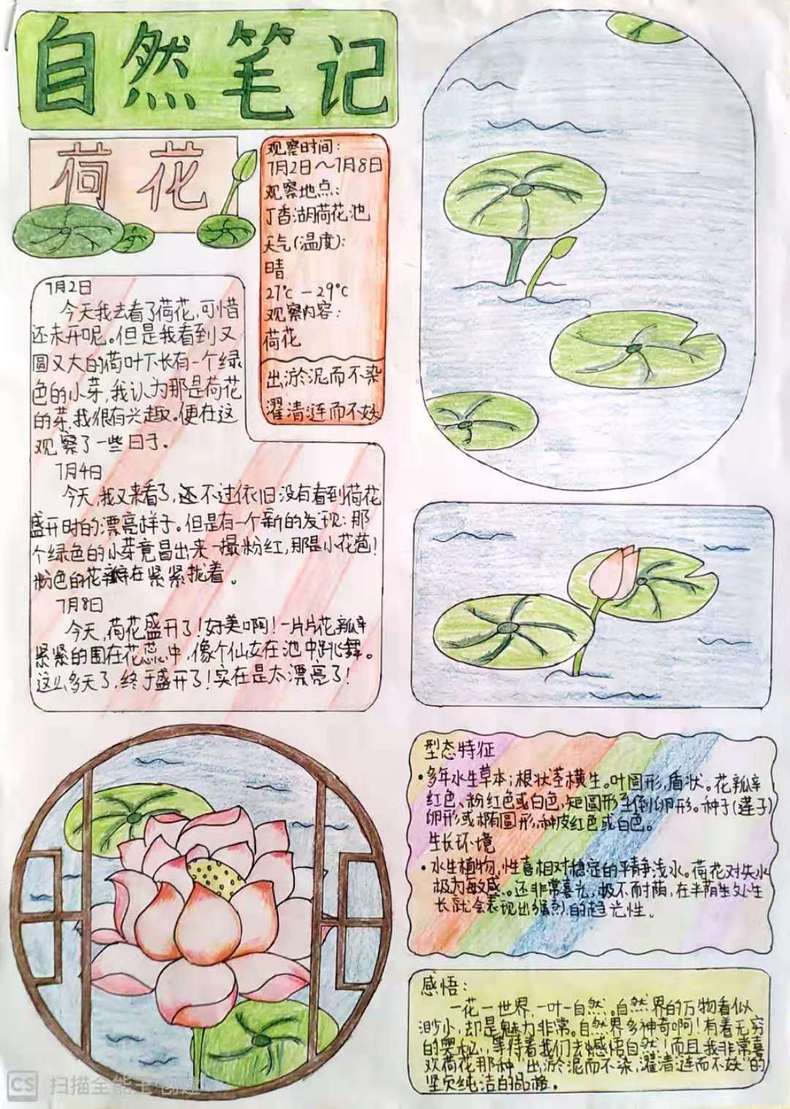 自然笔记
荷花
观察时间:
7月2日～7月8日
观察地点:
丁香湖荷花池
天气(温度):
晴
27℃-29℃
观察内容:
荷花
出淤泥而不染
濯清涟而不妖
7月2日
今天我去看了荷花,可惜
还未开呢。但是我看到又
圆又大的荷叶下长有一个绿
色的小芽,我认为那是荷花
的芽,我很有兴趣。便在这
观察了一些日子。
7月4日
今天,我又来看了,还不过依旧没有看到荷花
盛开时的漂亮样子。但是有一个新的发现:那
个绿色的小芽竟冒出来一撮粉红,那是小花苞!
粉色的花瓣在紧紧拢着。
7月8日
今天,荷花盛开了!好美啊!一片片花瓣
紧紧的围在花蕊中,像个仙女在池中跳舞。
这么多天了,终于盛开了!实在是太漂亮了!
型态特征
•多年水生草本;根状茎横生。叶圆形,盾状。花瓣
红色、粉红色或白色,矩圆形至倒卵形。种子(莲子)
卵形或椭圆形,种皮红色或白色。
生长环境
•水生植物,性喜相对稳定的平静浅水。荷花对失水
极为敏感。还非常喜光,极不耐荫,在半荫生处生
长就会表现出强烈的趋光性。
感悟:
一花一世界,一叶一自然。自然界的万物看似
渺小,却是魅力非常。自然界多神奇啊!有着无穷
的奥秘,等待着我们去感悟自然!而且我非常喜
欢荷花那种,出淤泥而不染,濯清涟而不妖的
坚贞纯洁的品格。
CS 扫描全能王